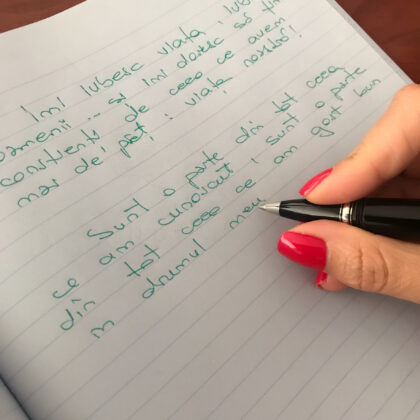 Îmi iubesc viața, iub
oamenii... și îmi doresc să fim
conștienți de ceea ce avem
mai de preț : viața noastră!
Sunt o parte din tot ceea
ce am cunoscut, sunt o parte
din tot ceea ce am găsit bun
în drumul meu